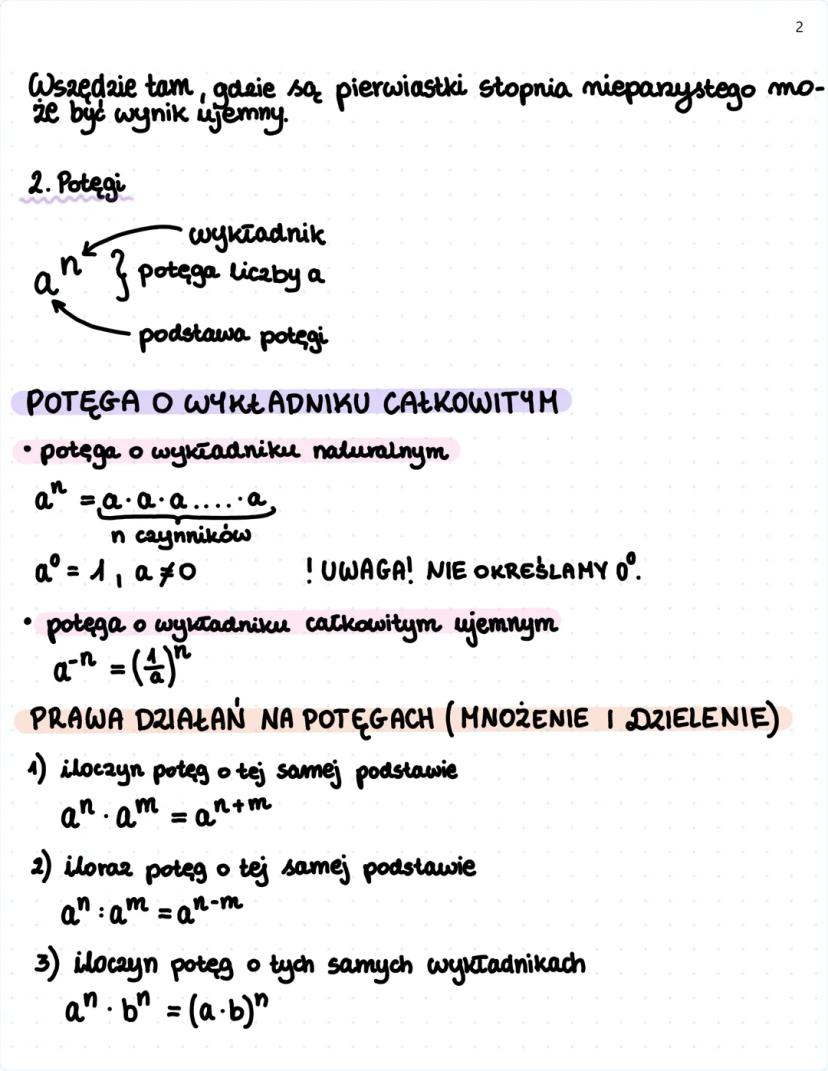 2
Wszędzie tam, gdzie są pierwiastki stopnia nieparzystego mo-
że być wynik ujemny.
2. Potęgi
wykładnik
aⁿ } potęga liczby a
podstawa potęgi
POTĘGA O WYKŁADNIKU CAŁKOWITYM
• potęga o wykładniku naturalnym
aⁿ = a·a·a....·a
n czynników
a⁰ = 1, a ≠ 0 ! UWAGA! NIE OKREŚLAMY 0⁰.
• potęga o wykładniku całkowitym ujemnym
a⁻ⁿ = (1/a)ⁿ
PRAWA DZIAŁAŃ NA POTĘGACH (MNOŻENIE I DZIELENIE)
1) iloczyn potęg o tej samej podstawie
aⁿ · aᵐ = aⁿ⁺ᵐ
2) iloraz potęg o tej samej podstawie
aⁿ : aᵐ = aⁿ⁻ᵐ
3) iloczyn potęg o tych samych wykładnikach
aⁿ · bⁿ = (a·b)ⁿ